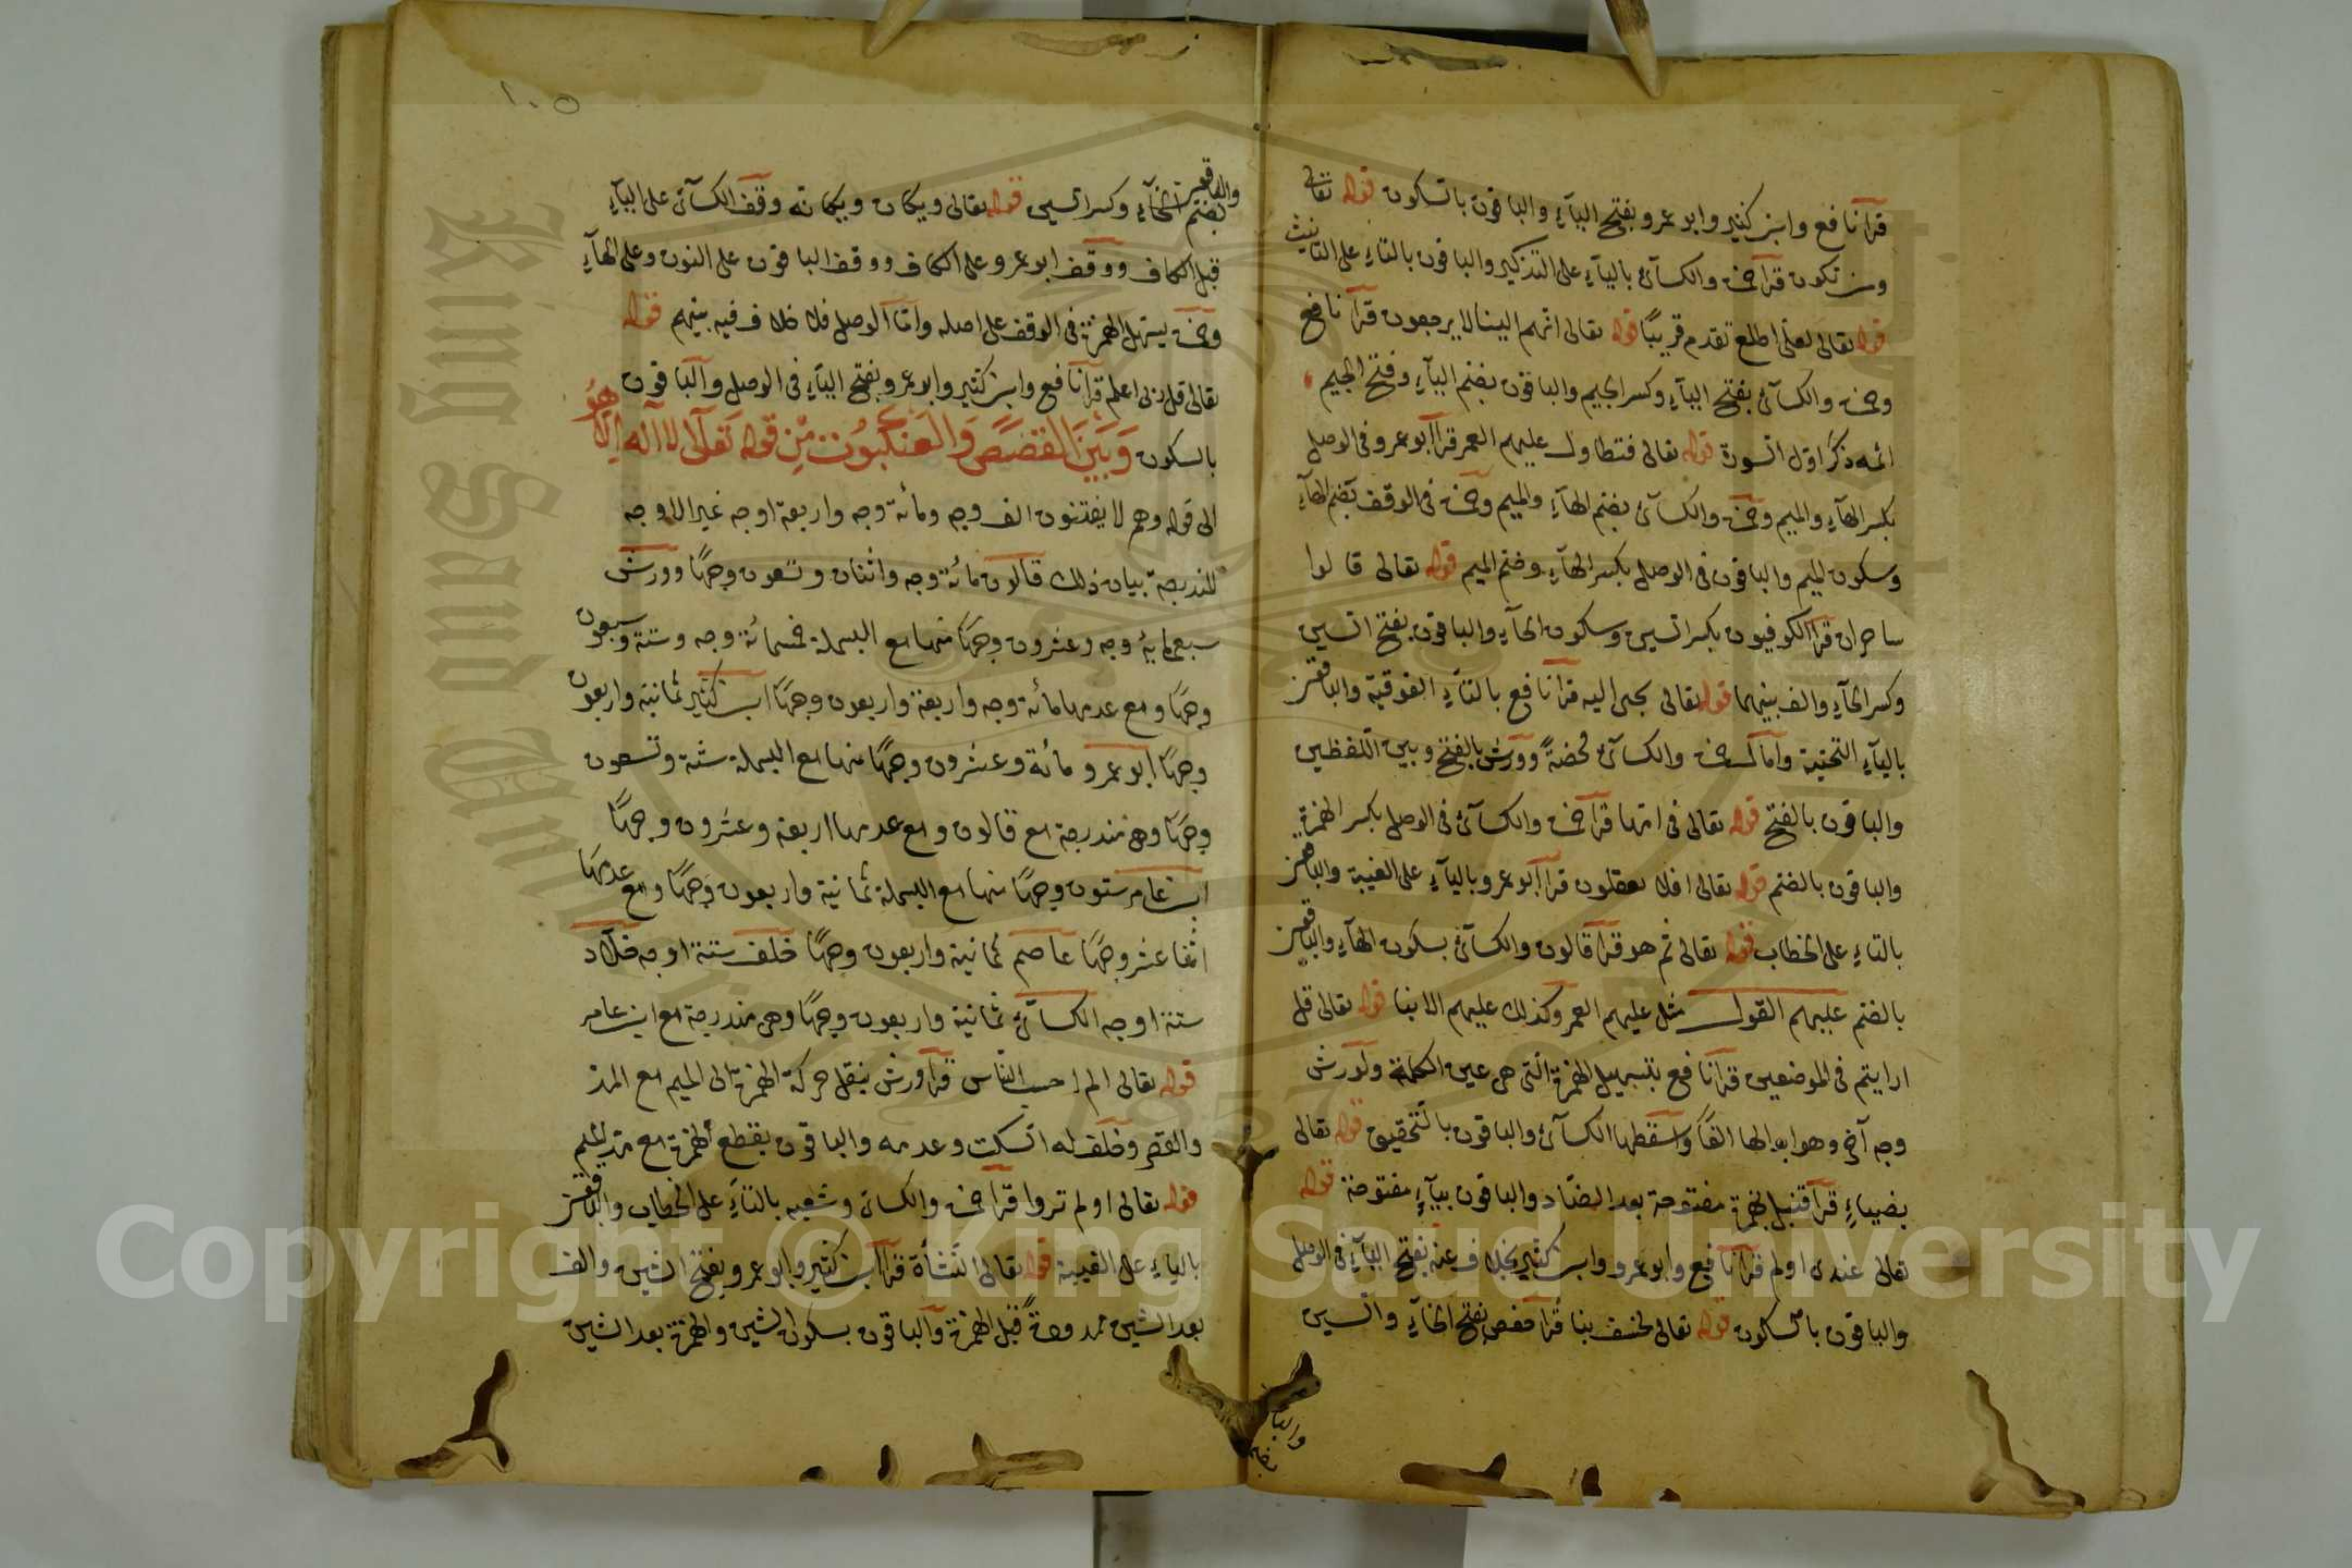 قرآ نافع وابن كثير وابو عمرو بفتح اليآء والباقون بالسكون قوله تعالى
ومن تكون قرآ حمزة والكسآئى باليآء على التذكير والباقون بالتاء على التانيث
قوله تعالى لعلى اطلع تقدم قريبًا قوله تعالى انهم الينا لا يرجعون قرآ نافع
وحمزة والكسآئى بفتح اليآء وكسر الجيم والباقون بضم اليآء وفتح الجيم
ائمه ذكر اول السورة قوله تعالى فتطاول عليهم العمر قرآ ابو عمرو فى الوصل
بكسر الهآء والميم وحمزة والكسآئى بضم الهآء والميم وحمزة فى الوقف بضم الهآء
وسكون الميم والباقون فى الوصل بكسر الهآء وضم الميم قوله تعالى قالوا
ساحران قرآ الكوفيون بكسر السين وسكون الحآء والباقون بفتح السين
وكسر الحآء والف بينهما قوله تعالى يجبى اليه قرآ نافع بالتآء الفوقية والباقون
باليآء التحتية وامال حمزة والكسآئى محضةً وورش بالفتح وبين اللفظين
والباقون بالفتح قوله تعالى فى امها قرآ حمزة والكسآئى فى الوصل بكسر الهمزة
والباقون بالضم قوله تعالى افلا تعقلون قرآ ابو عمرو باليآء على الغيبة والباقون
بالتاء على الخطاب قوله تعالى ثم هو قرآ قالون والكسآئى بسكون الهآء والباقون
بالضم عليهم القول مثل عليهم العمر وكذلك عليهم الانبا قوله تعالى قل
ارايتم فى الموضعين قرآ نافع بتسهيل الهمزة التى هى عين الكلمة ولورش
وجه آخر وهو ابدالها الفًا واسقطها الكسآئى والباقون بالتحقيق قوله تعالى
بضيآء قرآ قنبل بهمزة مفتوحة بعد الضاد والباقون بيآء مفتوحة قوله
تعالى عندى اولم قرآ نافع وابو عمرو وابن كثير بخلاف عنه بفتح اليآء فى الوصل
والباقون بالسكون قوله تعالى لخسف بنا قرآ حفص بفتح الخآء والسين
والباقون
بضم
١٠٥
والباقون
بضم الخآء وكسر السين قوله تعالى ويكان ويكانه وقف الكسآئى على اليآء
قبل الكاف ووقف ابو عمرو على الكاف ووقف الباقون على النون وعلى الهآء
وحمزة يسهل الهمزة فى الوقف على اصله واما الوصل فلا خلاف فيه بينهم قوله
تعالى قل ربى اعلم قرآ نافع وابن كثير وابو عمرو بفتح اليآء فى الوصل والباقون
بالسكون وَبَيْنَ القَصَصِ وَالعَنكَبُوت مِنْ قوله تعالى لا اله الا هو
الى قوله وهم لا يفتنون الف وجه ومائة وجه واربعة اوجه غير الاوجه
المندرجة بيان ذلك قالون مائة وجه واثنان وتسعون وجهًا وورش
سبعمائة وجه وعشرون وجهًا منها مع البسملة خمسمائة وجه وستة وسبعون
وجهًا ومع عدمها مائة وجه واربعة واربعون وجهًا ابن كثير ثمانية واربعون
وجهًا ابو عمرو مائة وعشرون وجهًا منها مع البسملة ستة وتسعون
وجهًا وهى مندرجة مع قالون ومع عدمها اربعة وعشرون وجهًا
ابن عامر ستون وجهًا منها مع البسملة ثمانية واربعون وجهًا ومع عدمها
اثنا عشر وجهًا عاصم ثمانية واربعون وجهًا خلف ستة اوجه خلاد
ستة اوجه الكسآئى ثمانية واربعون وجهًا وهى مندرجة مع ابن عامر
قوله تعالى الم احسب الناس قرآ ورش بنقل حركة الهمزة الى الميم مع المد
والقصر وخلف له السكت وعدمه والباقون بقطع الهمزة مع مد الميم
قوله تعالى اولم تروا قرآ حمزة والكسائى وشعبه بالتآء على الخطاب والباقون
بالياء على الغيبة قوله تعالى النشأة قرآ ابن كثير وابو عمرو بفتح الشين والف
بعد الشين ممدودةً قبل الهمزة والباقون بسكون الشين والهمزة بعد الشين
Copyright © King Saud University
King Saud University
1957